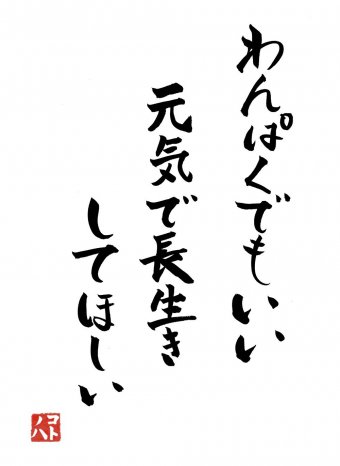 わんぱくでもいい
元気で長生き
してほしい
コトノハ